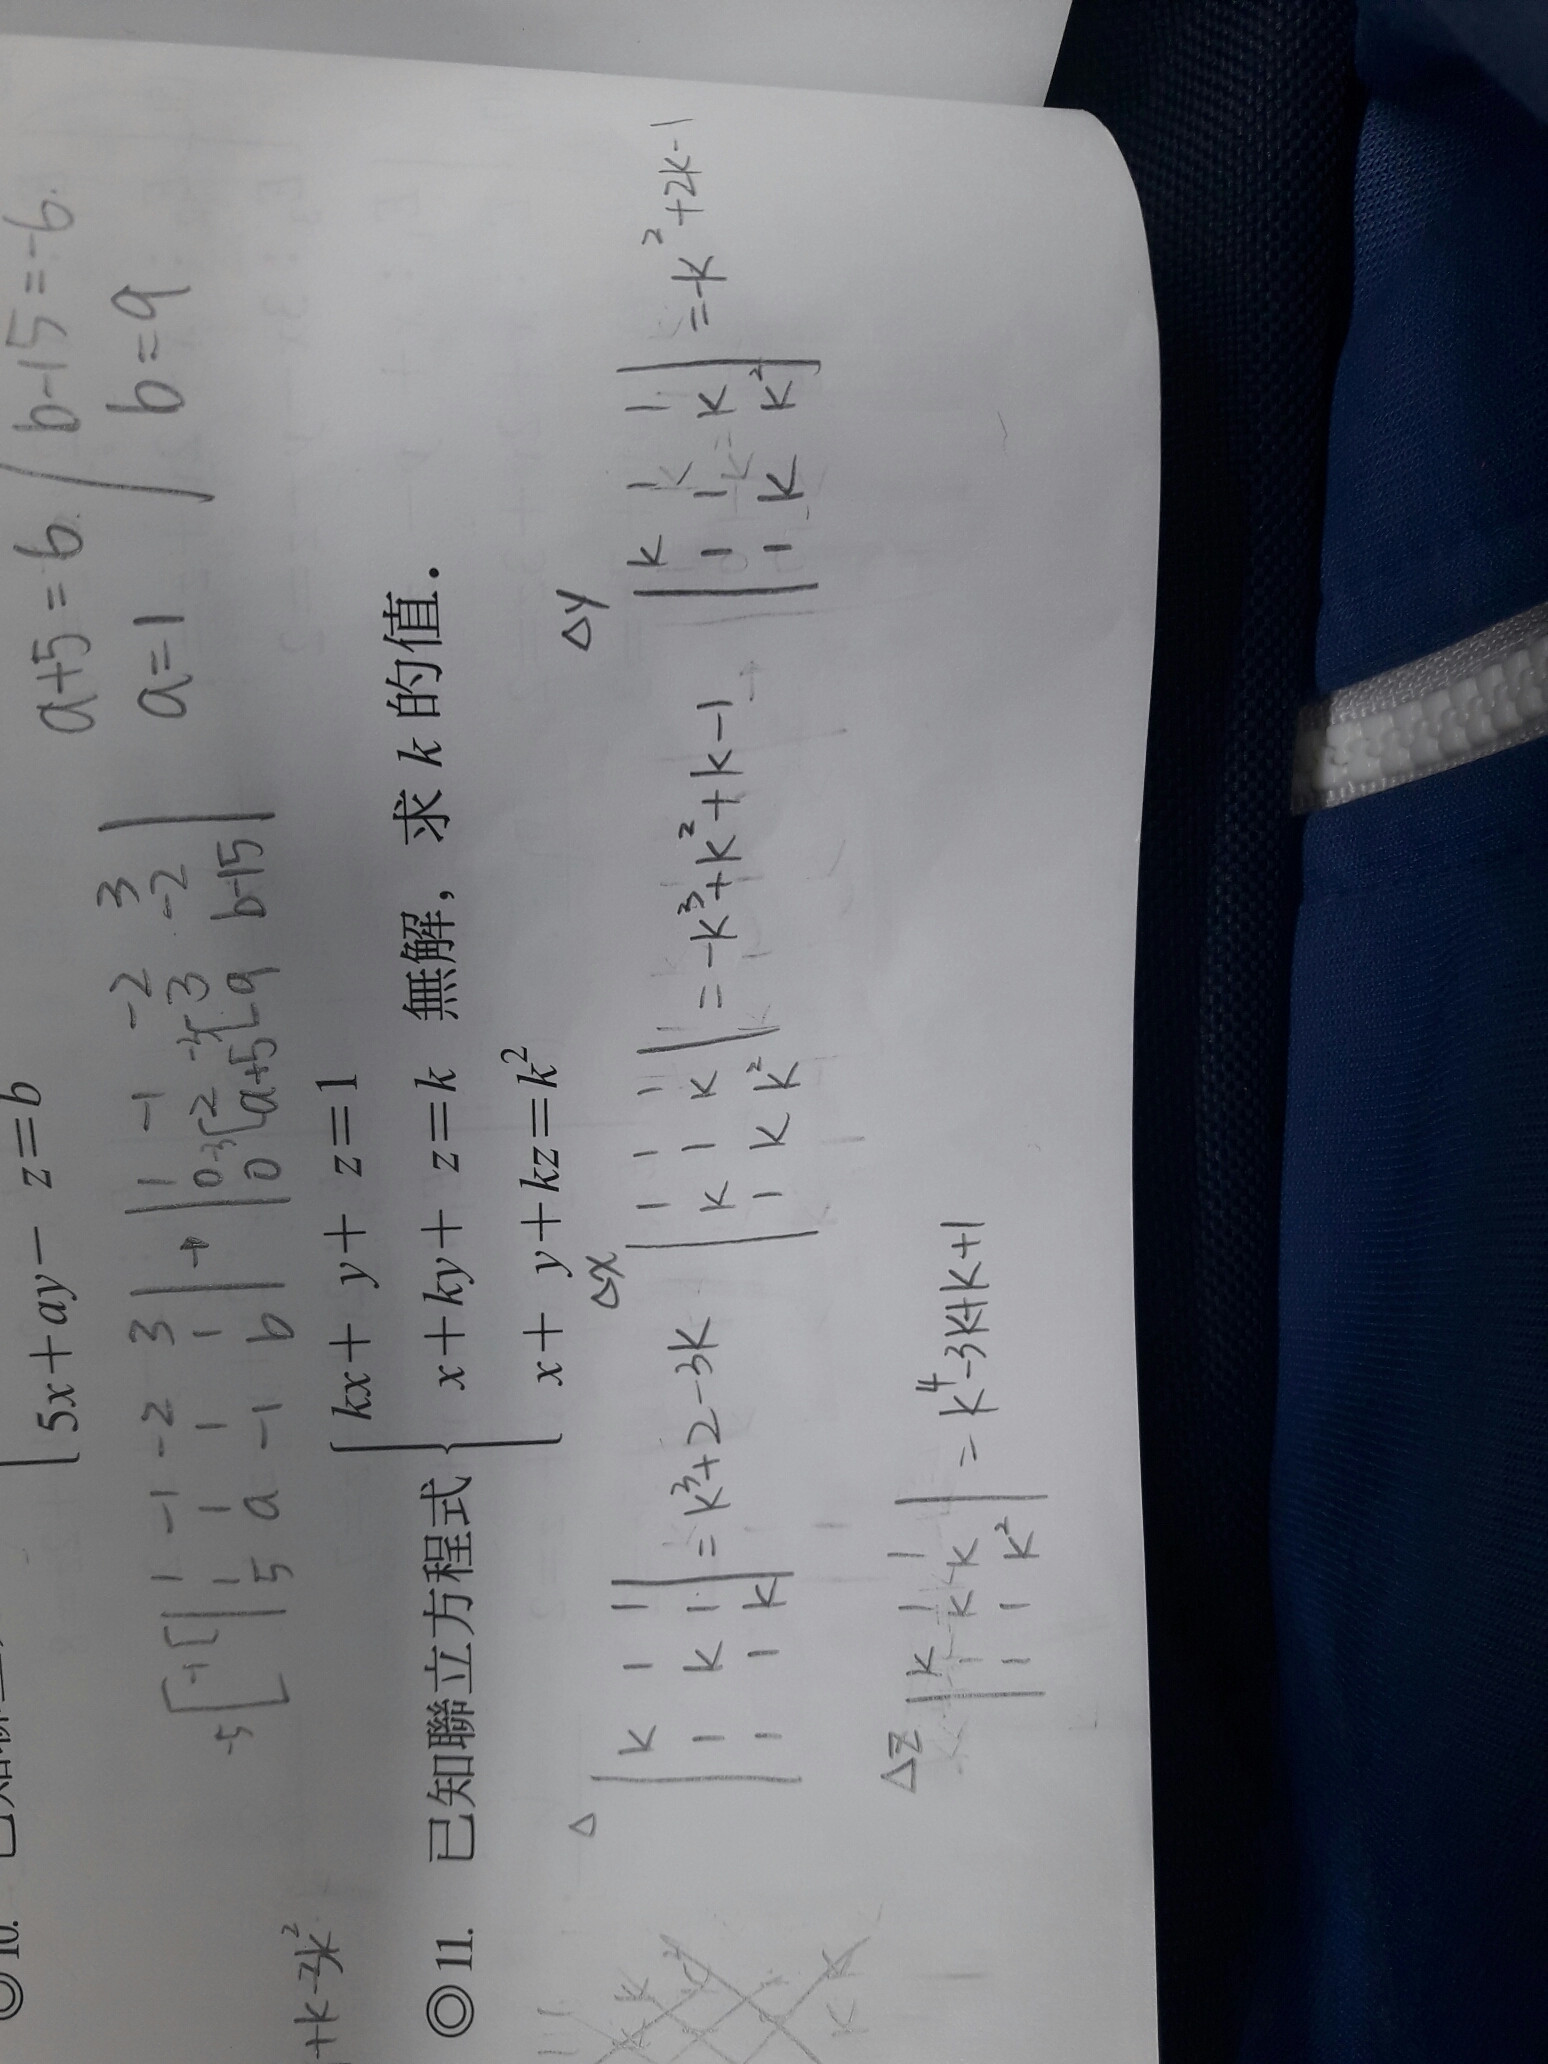 5x+ay- z=b
a+5=6 / b-15=-6
a=1 / b=9
1 -1 -2 3
1 1 1 1
5 a -1 b
1 -1 -2 3
0 2 3 -2
0 a+5 9 b-15
+k-3k²
◎11. 已知聯立方程式
kx+ y+ z=1
x+ky+ z=k
x+ y+kz=k²
無解，求 k 的值．
Δ
k 1 1
1 k 1
1 1 k
=k³+2-3k
Δx
1 1 1
k 1 k
1 k k²
=-k³+k²+k-1
Δy
k 1 1
1 1 k
1 k k²
=-k²+2k-1
Δz
k 1 1
1 k k
1 1 k²
=k⁴-3k+k+1